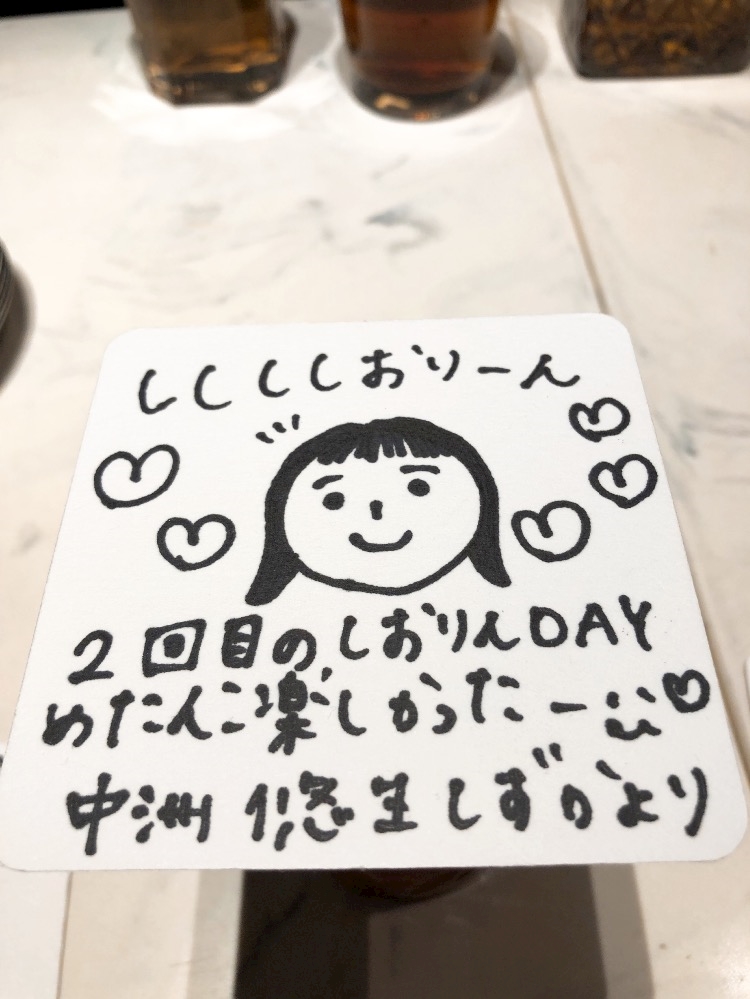 しししししおりーん
2回目のしおりんDAY
めたんこ楽しかったー
中洲 悠生しずかより